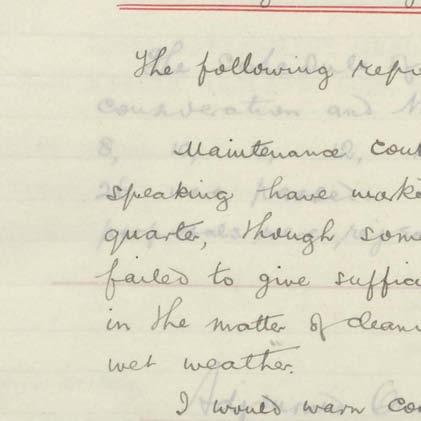 The following repo
Maintenance cont
speaking have worke
quarter, though some
failed to give suffic
in the matter of clean
wet weather.
I would warn con